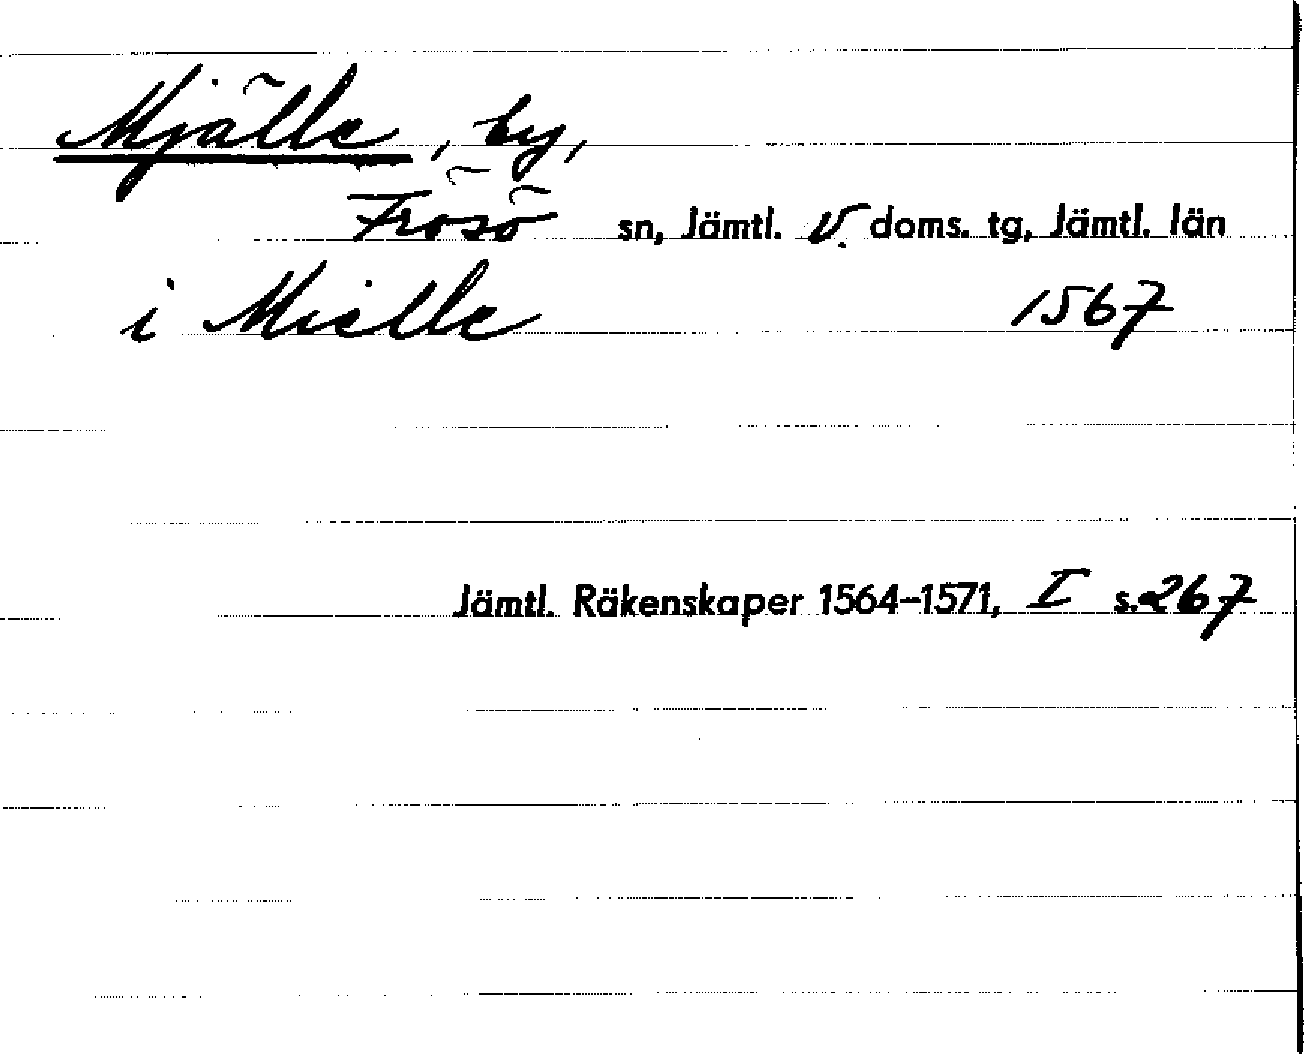 Mjälle, by,
Frösö sn, Jämtl. v. doms. tg, Jämtl. län
i Mielle 1567
Jämtl. Räkenskaper 1564–1571, I s. 267